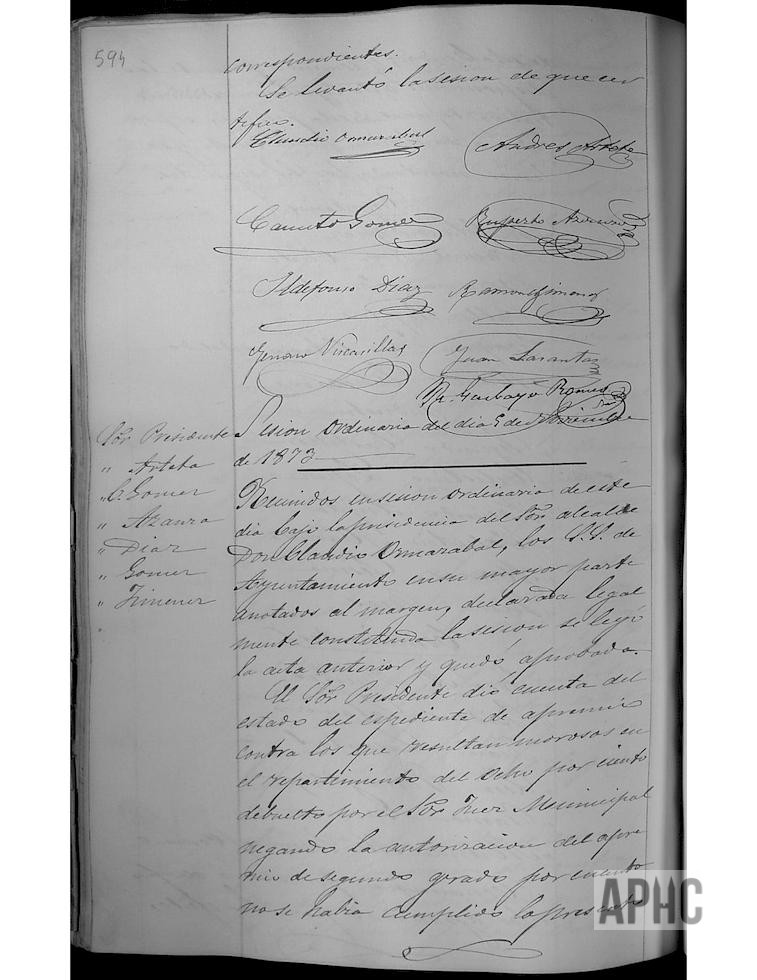 594
correspondientes.
Se levantó la sesion de que cer
tifico.
Claudio Ormazabal
Andres Arteta
Canuto Gomez
Ruperto Azanza
Ildefonso Diaz
Ramon Gimenez
Genaro Vicarillas
Juan
M. Garbayo Romeo
Sesion Ordinaria del dia 5 de
de 1873
Sor Presidente
" Arteta
" C. Gomez
" Azanza
" Diaz
" Gomez
" Ximenez
Reunidos en sesion ordinaria de este
dia bajo la presidencia del Sor alcalde
Don Claudio Ormazabal, los S.S. de
Ayuntamiento en su mayor parte
anotados al margen, declarada legal
mente constituida la sesion se leyó
la acta anterior y quedó aprobada.
El Sor Presidente dio cuenta del
estado del espediente de apremio
contra los que resultan morosos en
el repartimiento del ocho por ciento
debuelto por el Sor Juez Municipal
negando la autorizacion del apre
mio de segundo grado por cuanto
no se habia cumplido lo
APHC